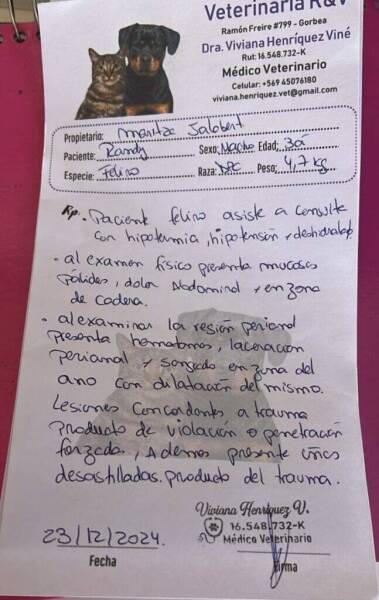 Veterinaria R&V
Ramón Freire #799 - Gorbea
Dra. Viviana Henríquez Viné
Rut: 16.548.732-K
Médico Veterinario
Celular: +569 45076180
viviana.henriquez.vet@gmail.com
Propietario: Maritza Jalabert
Paciente: Randy Sexo: Macho Edad: 3a
Especie: Felino Raza: DPC Peso: 4,7 kg
Rp. • Paciente felino asiste a consulta
con hipotermia, hipotensión y deshidratado
• al examen físico presenta mucosas
pálidas, dolor Abdominal y en zona
de cadera.
• al examinar la región perianal
presenta hematomas, laceración
perianal y sangrado en zona del
ano con dilatación del mismo.
Lesiones concordantes a trauma
producto de violación o penetración
forzada, Ademas presenta uñas
desastilladas. producto del trauma.
Viviana Henríquez V.
16.548.732-K
Médico Veterinario
23/12/2024.
Fecha
Firma